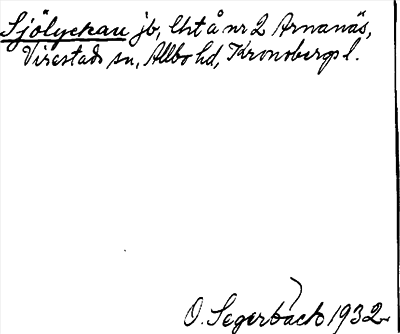 Sjölyckan jb, lht å nr 2 Arnanäs,
Virestads sn, Allbo hd, Kronobergs l.
O. Segerbäck 1932